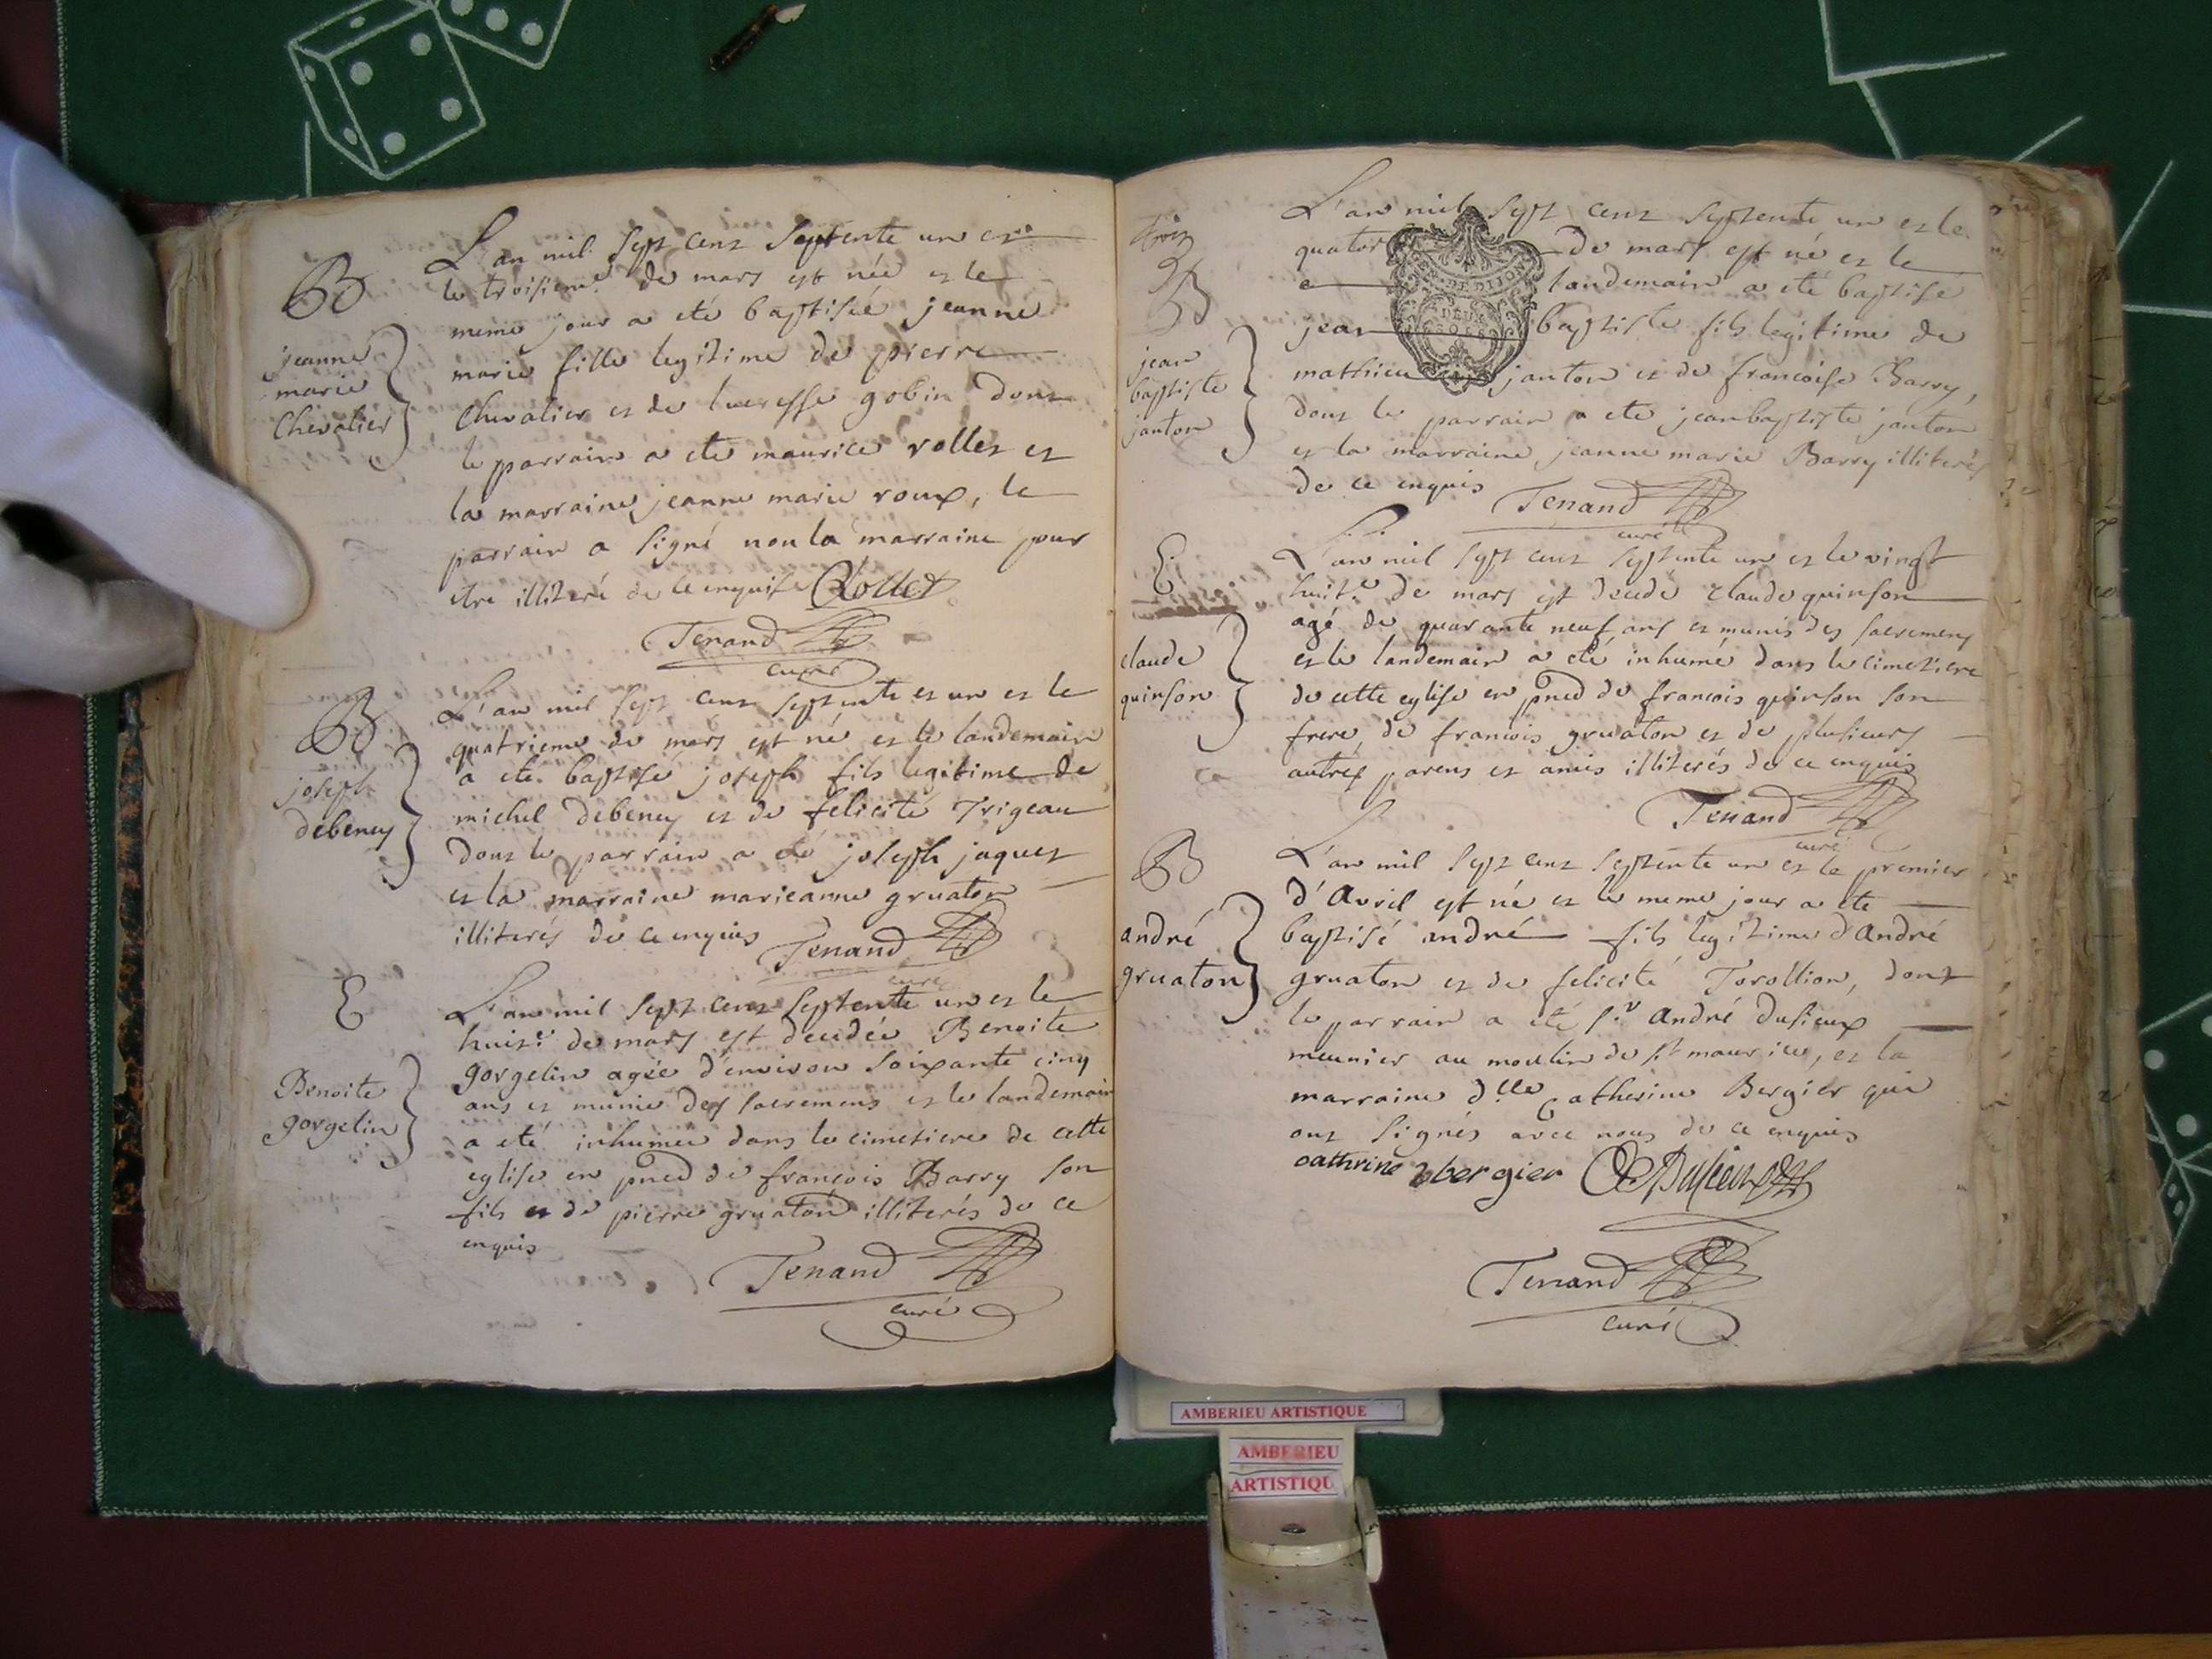 B
jeanne
marie
Chevalier
L'an mil sept cent septente un et
le troisieme de mars est née et le
meme jour a eté baptisée jeanne
marie fille legitime de pierre
Chevalier et de lucresse gobin dont
le parrain a ete maurice rollet et
la marraine jeanne marie roux, le
parrain a signé non la marraine pour
etre illiteré de ce enquise Rollet
Tenand
curé
B
joseph
debeney
L'an mil sept cent septente et un et le
quatrieme de mars est né et le landemain
a ete baptisé joseph fils legitime de
michel debeney et de felicité Trigeau
dont le parrain a eté joseph jaquet
et la marraine marieanne gruaton
illiterés de ce enquis Tenand
curé
E
Benoite
gorgelin
L'an mil sept cent septente un et le
huit.e de mars est decedée Benoite
gorgelin agée d'environ soixante cinq
ans et munie des sacremens et le landemain
a eté inhumée dans le cimetiere de cette
eglise en pnce de françois Barry son
fils et de pierre gruaton illiterés de ce
enquis
Tenand
curé
trois
B
jean
baptiste
janton
L'an mil sept cent septente un et le
quator de mars est né et le
e landemain a eté baptisé
jean baptiste fils legitime de
mathieu janton et de francoise Barry,
dont le parrain a ete jeanbaptiste janton
et la marraine jeanne marie Barry illiterés
de ce enquis Tenand
curé
DE DIJON
DEUX
E
claude
quinson
L'an mil sept cent septente un et le vingt
huit.e de mars est decedé claude quinson
agé de quarante neuf ans et munis des sacremens
et le landemain a eté inhumé dans le cimetiere
de cette eglise en pnce de francois quinson son
frere, de francois gruaton et de plusieurs
autres parens et amis illiterés de ce enquis
Tenand
curé
B
andré
gruaton
L'an mil sept cent septente un et le premier
d'Avril est né et le meme jour a ete
baptisé andré fils legitime d'André
gruaton et de felicité Torollion, dont
le parrain a eté s.r André Dusieux
meunier au moulin de st maurice, et la
marraine d.lle Catherine Bergier qui
ont signés avec nous de ce enquis
cathrine bergier
Tenand
curé
AMBERIEU ARTISTIQUE
AMBERIEU
ARTISTIQU